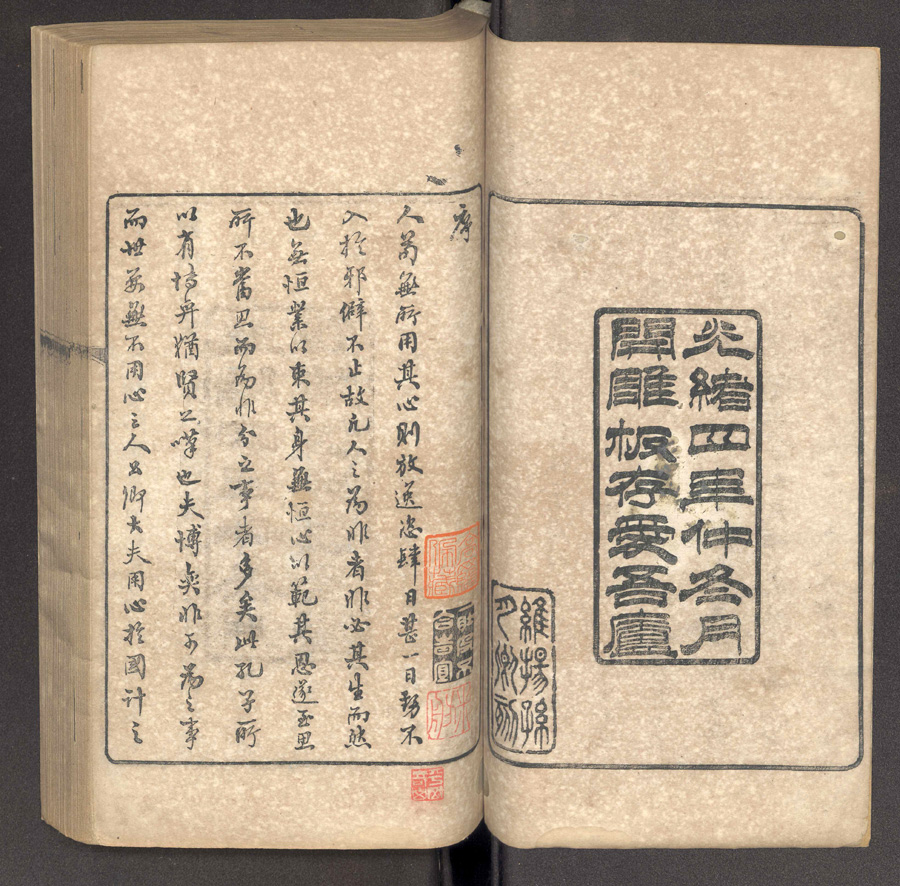 光緒四年仲冬月
開雕板存愛吾廬
維揚孫
卿刻
序
人苟無所用其心則放逸恣肆日甚一日勢不
入於邪僻不止故凡人之為非者非必其生而然
也無恒業以束其身無恒心以範其思遂至思
所不當思而為非分之事者多矣此孔子所
以有博弈猶賢之嘆也夫博弈非可為之事
而世要無不用心之人公卿大夫用心於國計之